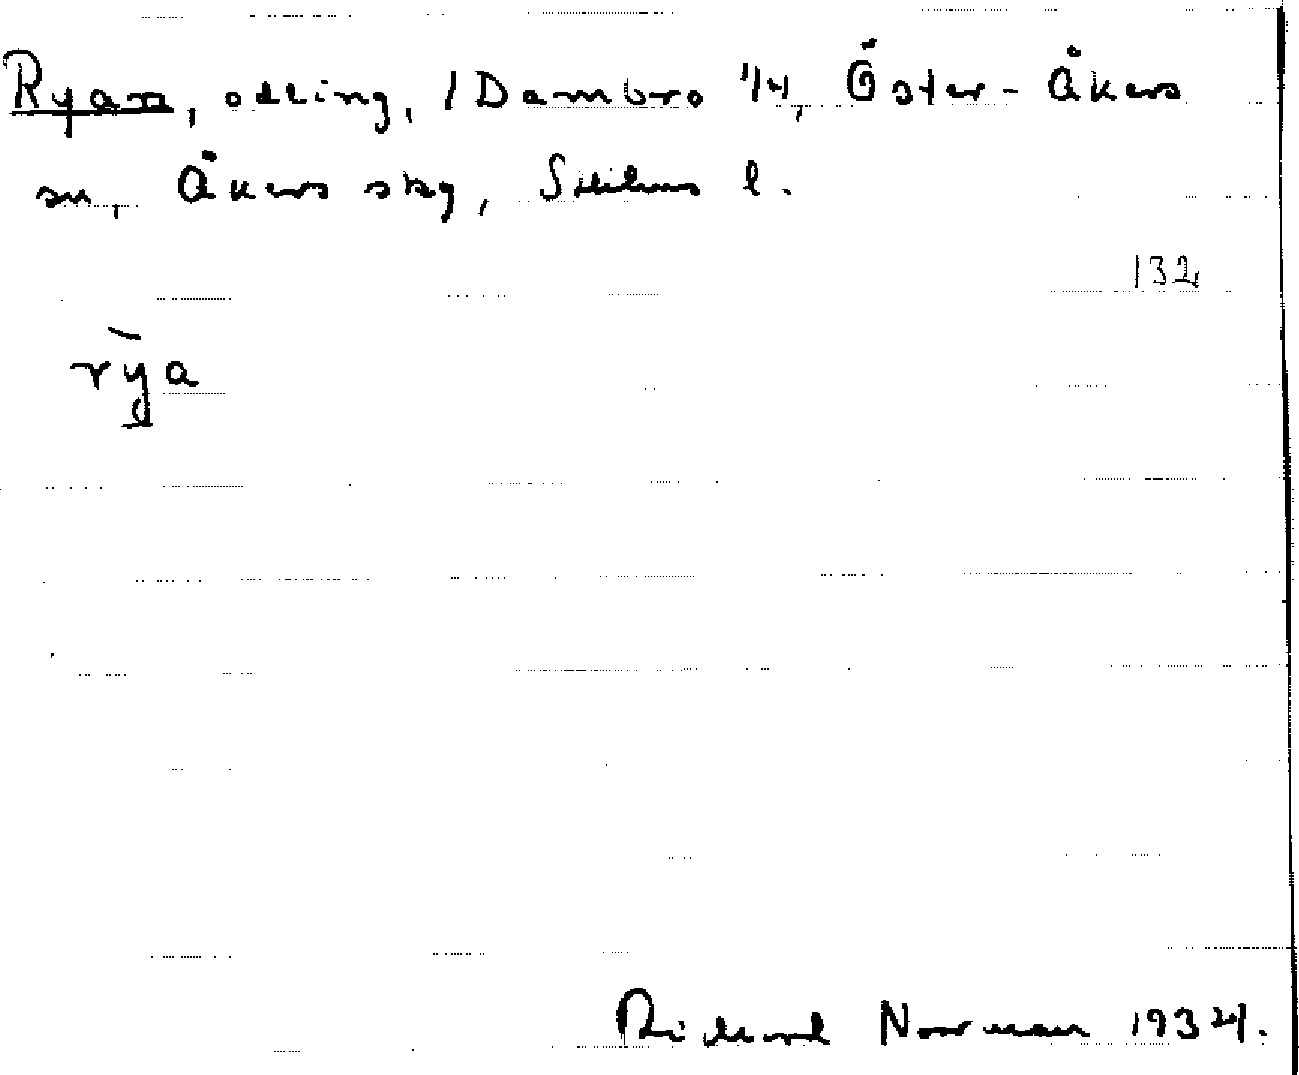 Ryan, odling, 1 Dambro 1/4, Öster-Åkers
sn, Åkers skg, Sthlms l.
132
rỳa
Richard Norrman 1934.